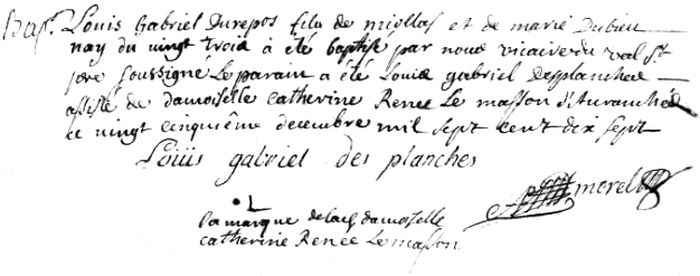 Bap. Louis Gabriel Durepos fils de nicollas et de marie Dubieu
nay du vingt trois à été baptisé par nous vicaire du val st
pere soussigné Le parain a été Louis gabriel desplanches
assisté de damoiselle catherine Renee Le masson d'Avranches
ce vingt cinquième decembre mil sept cent dix sept
Loüis gabriel des planches
morel
la marque de lad damoiselle
catherine Renee Le masson